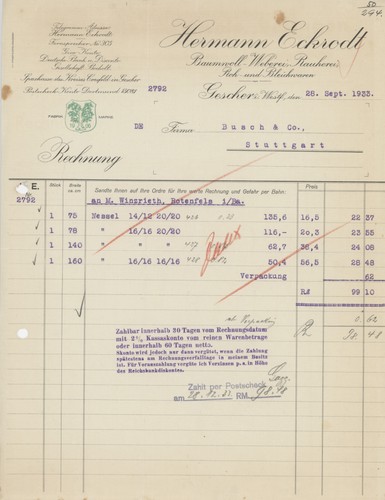 50
294.
Telegramm-Adresse:
Hermann Eckrodt
Fernsprecher No 305
Giro-Konto:
Deutsche Bank u. Disconto-
Gesellschaft Bocholt.
Sparkasse des Kreises Coesfeld in Gescher
Postscheck-Konto Dortmund
Hermann Eckrodt
Baumwoll-Weberei, Rauherei
Roh- und Bleichwaren
2792
Gescher i. Westf., den 28. Sept. 1933.
DE
Firma Busch & Co.,
Stuttgart
Rechnung
E.
Stück Breite ca. cm Sandte Ihnen auf Ihre Ordre für Ihre werte Rechnung und Gefahr per Bahn: Preis
2792 an M. Winzrieth, Rotenfels i/Ba.
1 75 Nessel 14/12 20/20 135,6 16,5 22 37
1 78 " 16/16 20/20 116,- 20,3 23 55
1 140 " 16/16 20/20 62,7 38,4 24 08
1 160 " 16/16 16/16 50,4 56,5 28 48
Verpackung 62
RM 99 10
0.62
98.48
Zahlbar innerhalb 30 Tagen vom Rechnungsdatum
mit 2% Kassaskonto vom reinen Warenbetrage
oder innerhalb 60 Tagen netto.
Skonto wird jedoch nur dann vergütet, wenn die Zahlung
spätestens am Rechnungsverfalltage in meinem Besitz
ist. Für Vorauszahlung vergüte ich Vorzinsen p. a. in Höhe
des Reichsbankdiskontes.
Zahlt per Postscheck
am RM 98.48